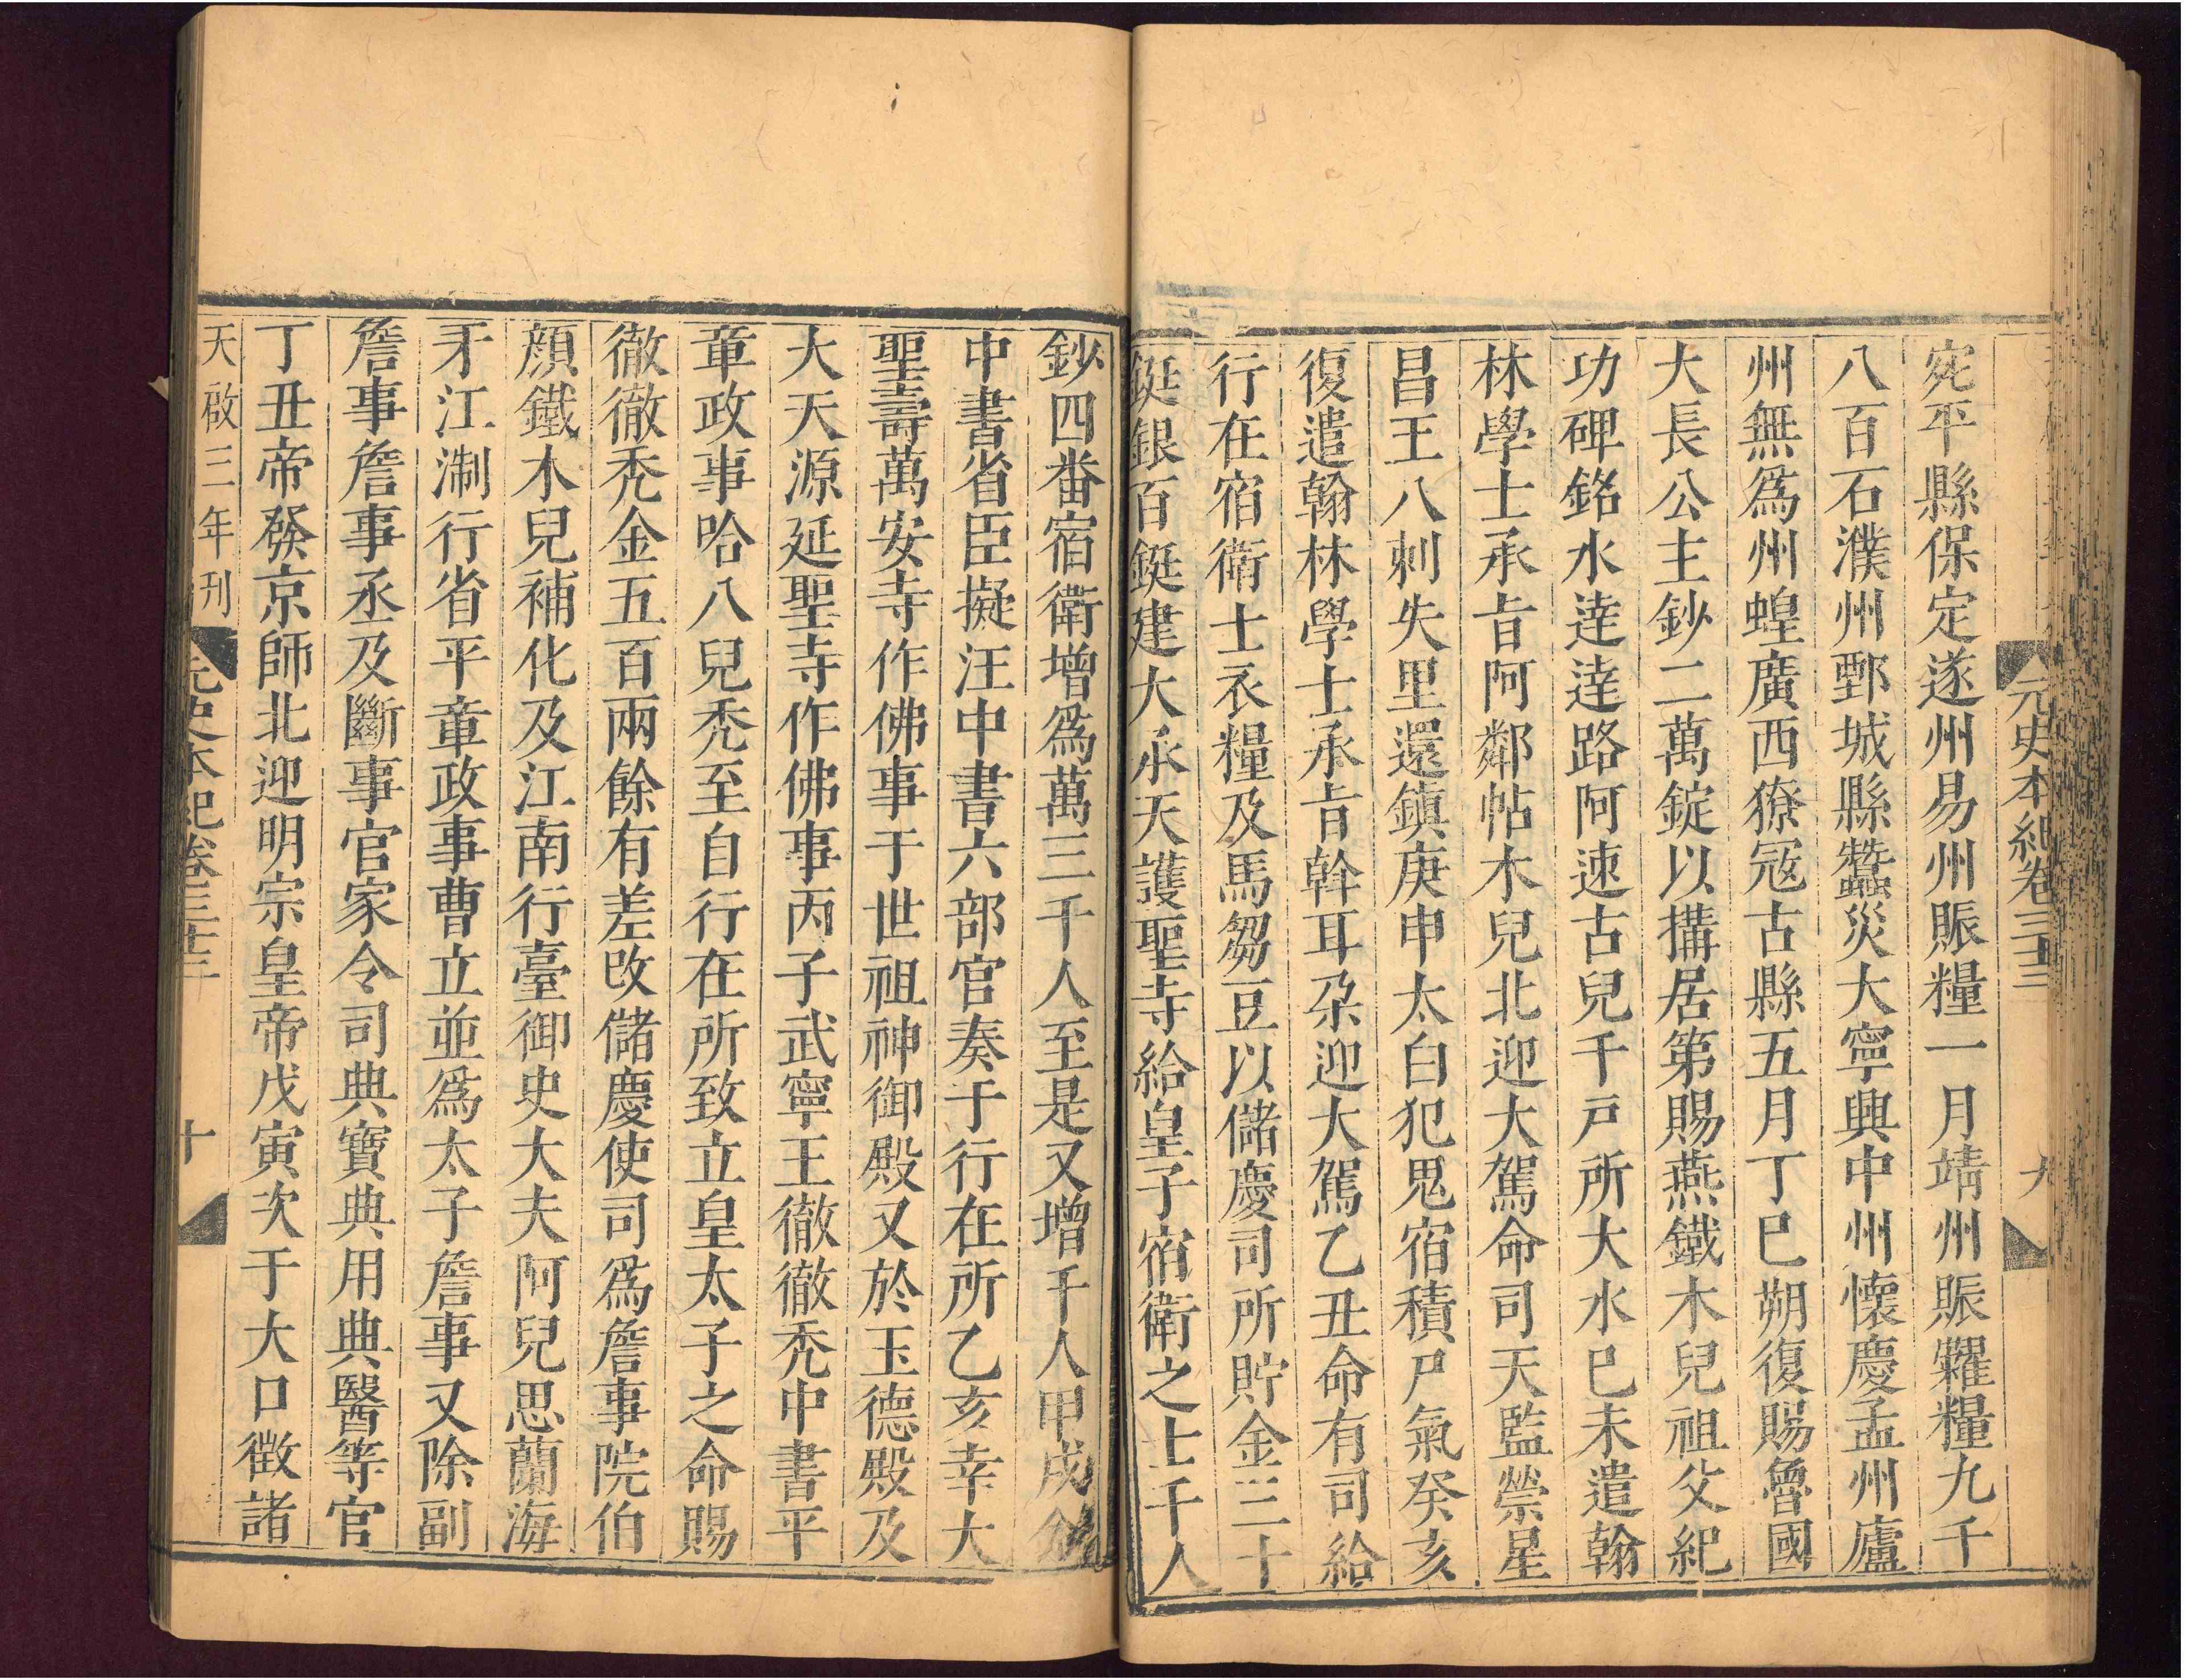 元史本紀卷三十三 九
宛平縣保定遂州易州賑糧一月靖州賑糶糧九千
八百石濮州鄄城縣蠶災大寧興中州懷慶孟州廬
州無爲州蝗廣西獠冦古縣五月丁巳朔復賜魯國
大長公主鈔二萬錠以搆居第賜燕鐵木兒祖父紀
功碑銘水逹逹路阿速古兒千戸所大水巳未遣翰
林學士承旨阿鄰帖木兒北迎大駕命司天監禜星
昌王八剌失里還鎮庚申太白犯鬼宿積尸氣癸亥
復遣翰林學士承旨斡耳朶迎大駕乙丑命有司給
行在宿衛士衣糧及馬芻豆以儲慶司所貯金三十
鋌銀百鋌建大承天護聖寺給皇子宿衛之士千人
鈔四番宿衛增爲萬三千人至是又增千人甲戌
中書省臣擬汪中書六部官奏于行在所乙亥幸大
聖壽萬安寺作佛事于世祖神御殿又於玉德殿及
大天源延聖寺作佛事丙子武寧王徹徹禿中書平
章政事哈八兒禿至自行在所致立皇太子之命賜
徹徹禿金五百兩餘有差改儲慶使司爲詹事院伯
顔鐵木兒補化及江南行臺御史大夫阿兒思蘭海
牙江淛行省平章政事曹立並爲太子詹事又除副
詹事詹事丞及斷事官家令司典寶典用典醫等官
丁丑帝發京師北迎明宗皇帝戊寅次于大口徵諸
天啟三年刊 元史本紀卷三十三 十